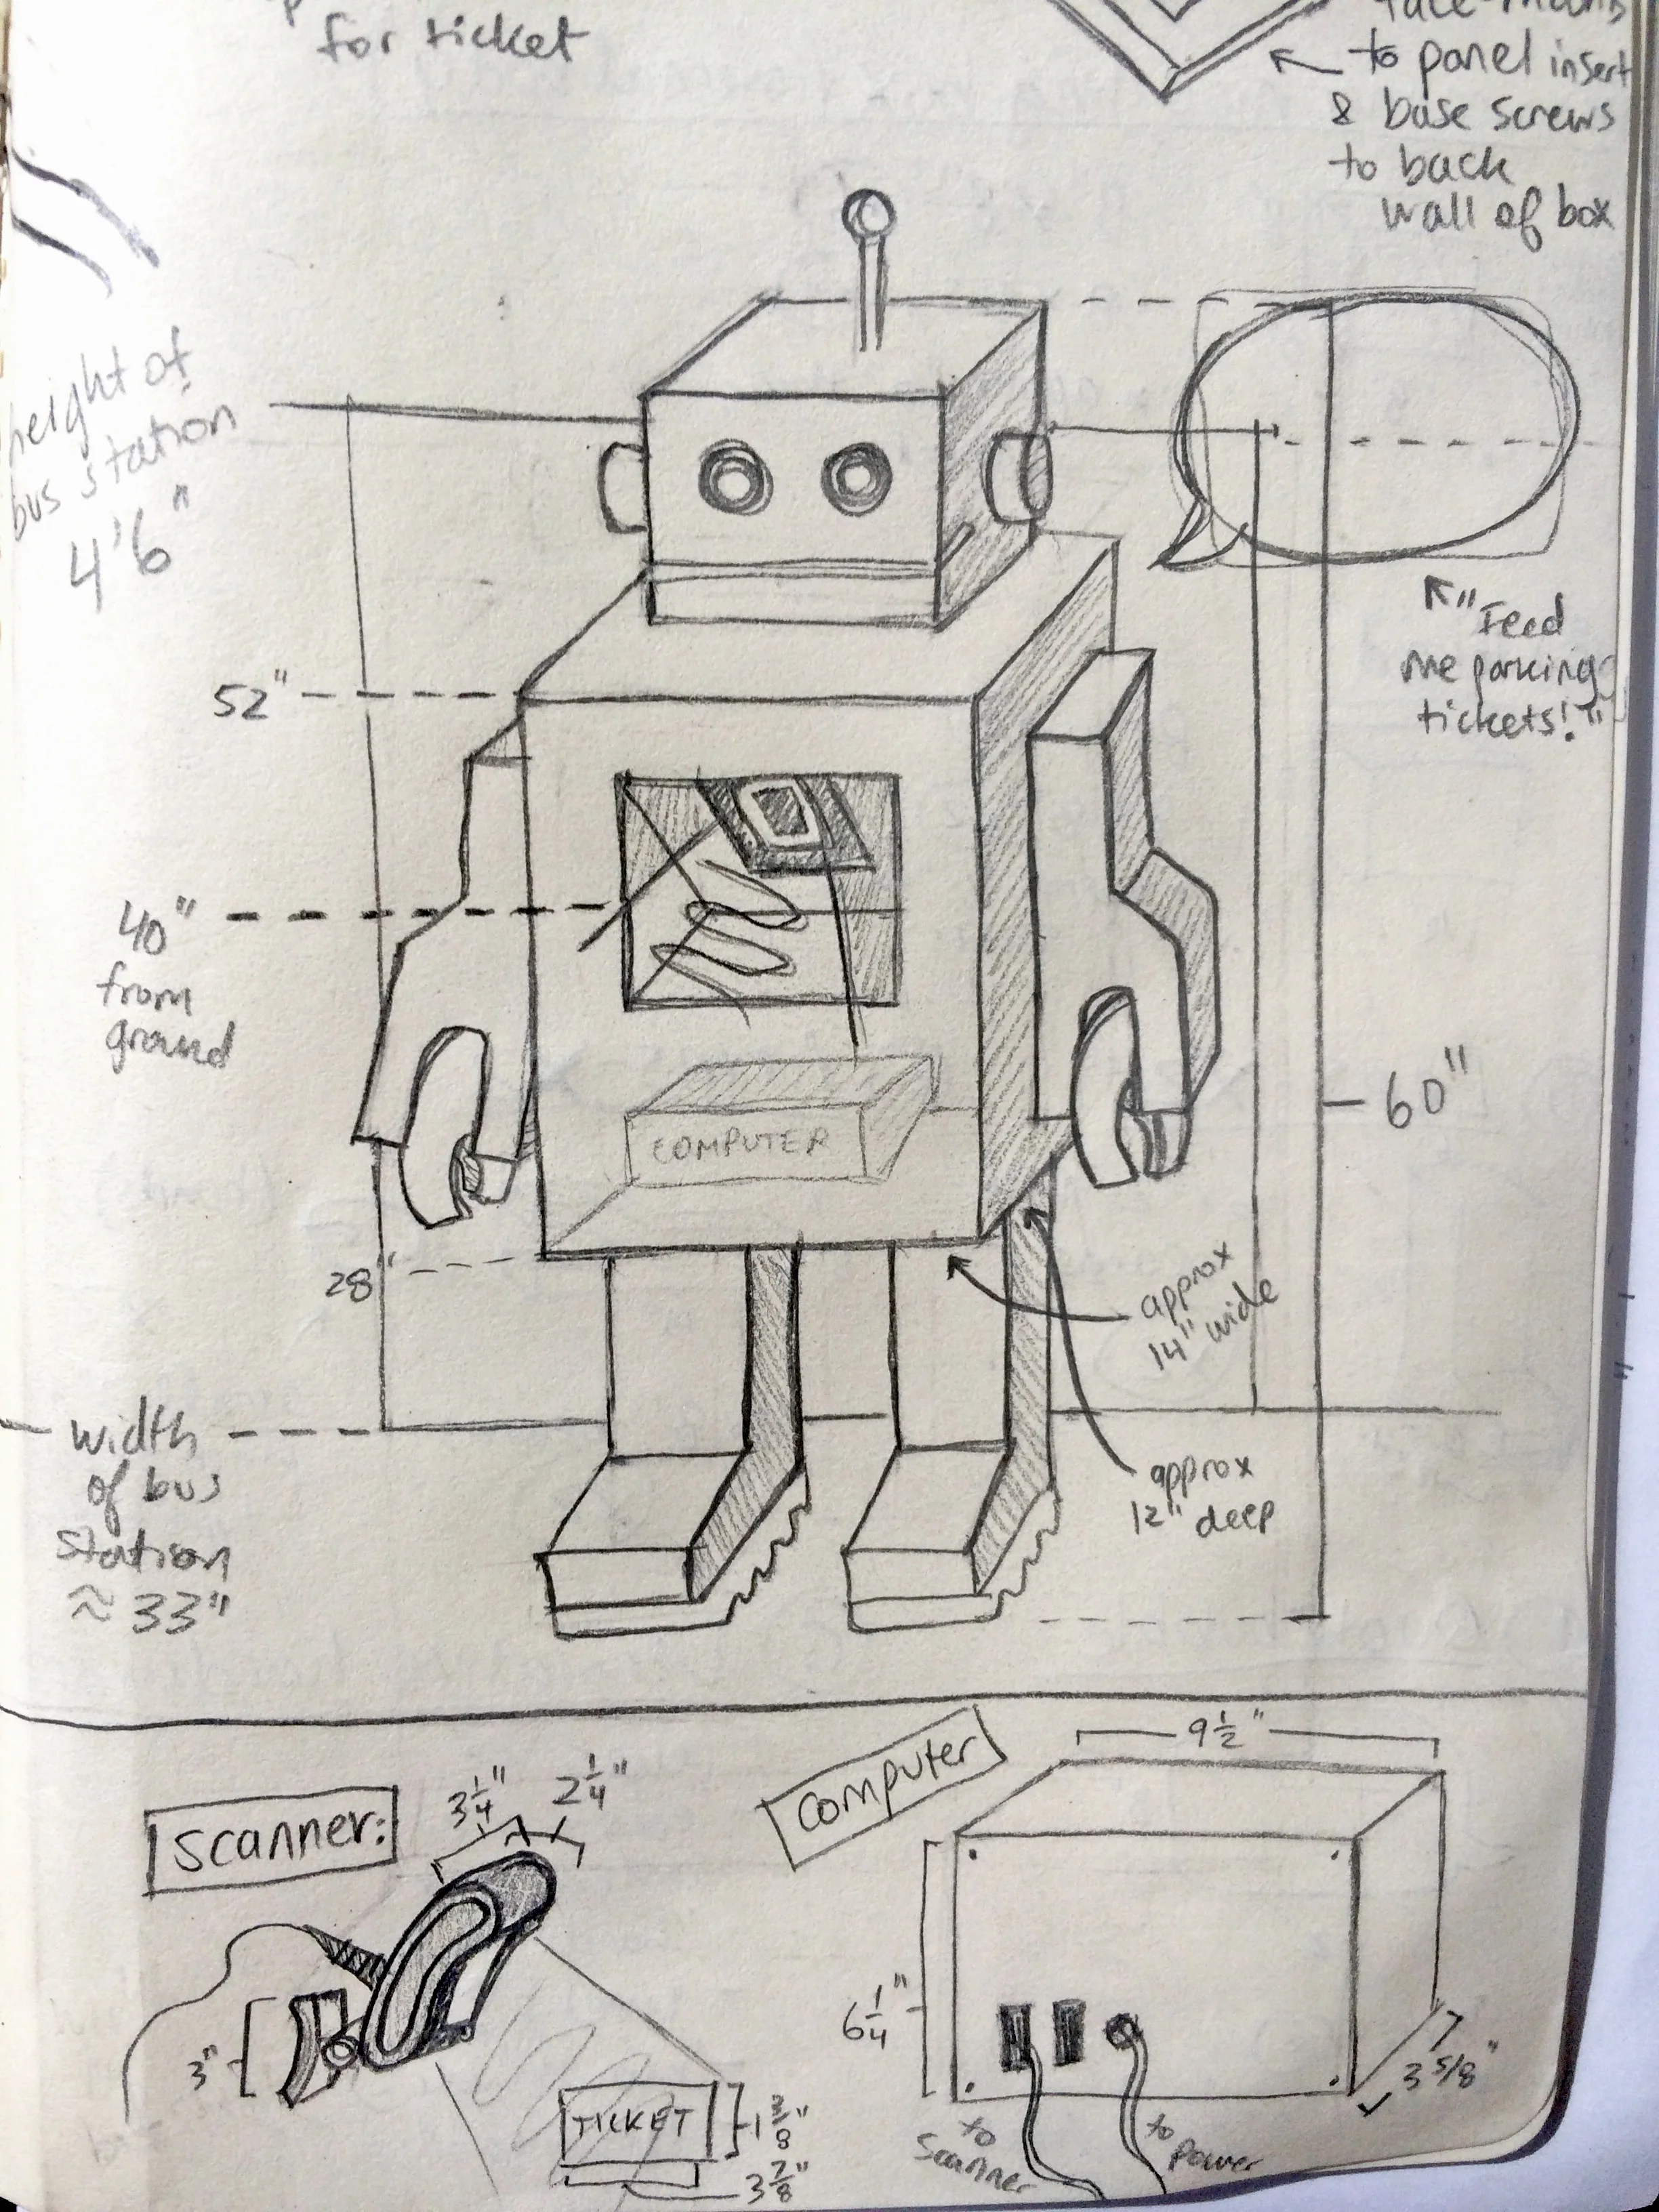 for ticket
to panel insert
& base screws
to back
wall of box
height of
bus station
4'6"
"Feed
me parking
tickets!"
52"
40"
from
ground
60"
COMPUTER
28"
approx
14" wide
width
of bus
station
≈ 33"
approx
12" deep
Scanner:
3 1/4"
2 1/4"
3"
TICKET
1 3/8"
3 7/8"
Computer
9 1/2"
6 1/4"
3 5/8"
to
Scanner
to
power